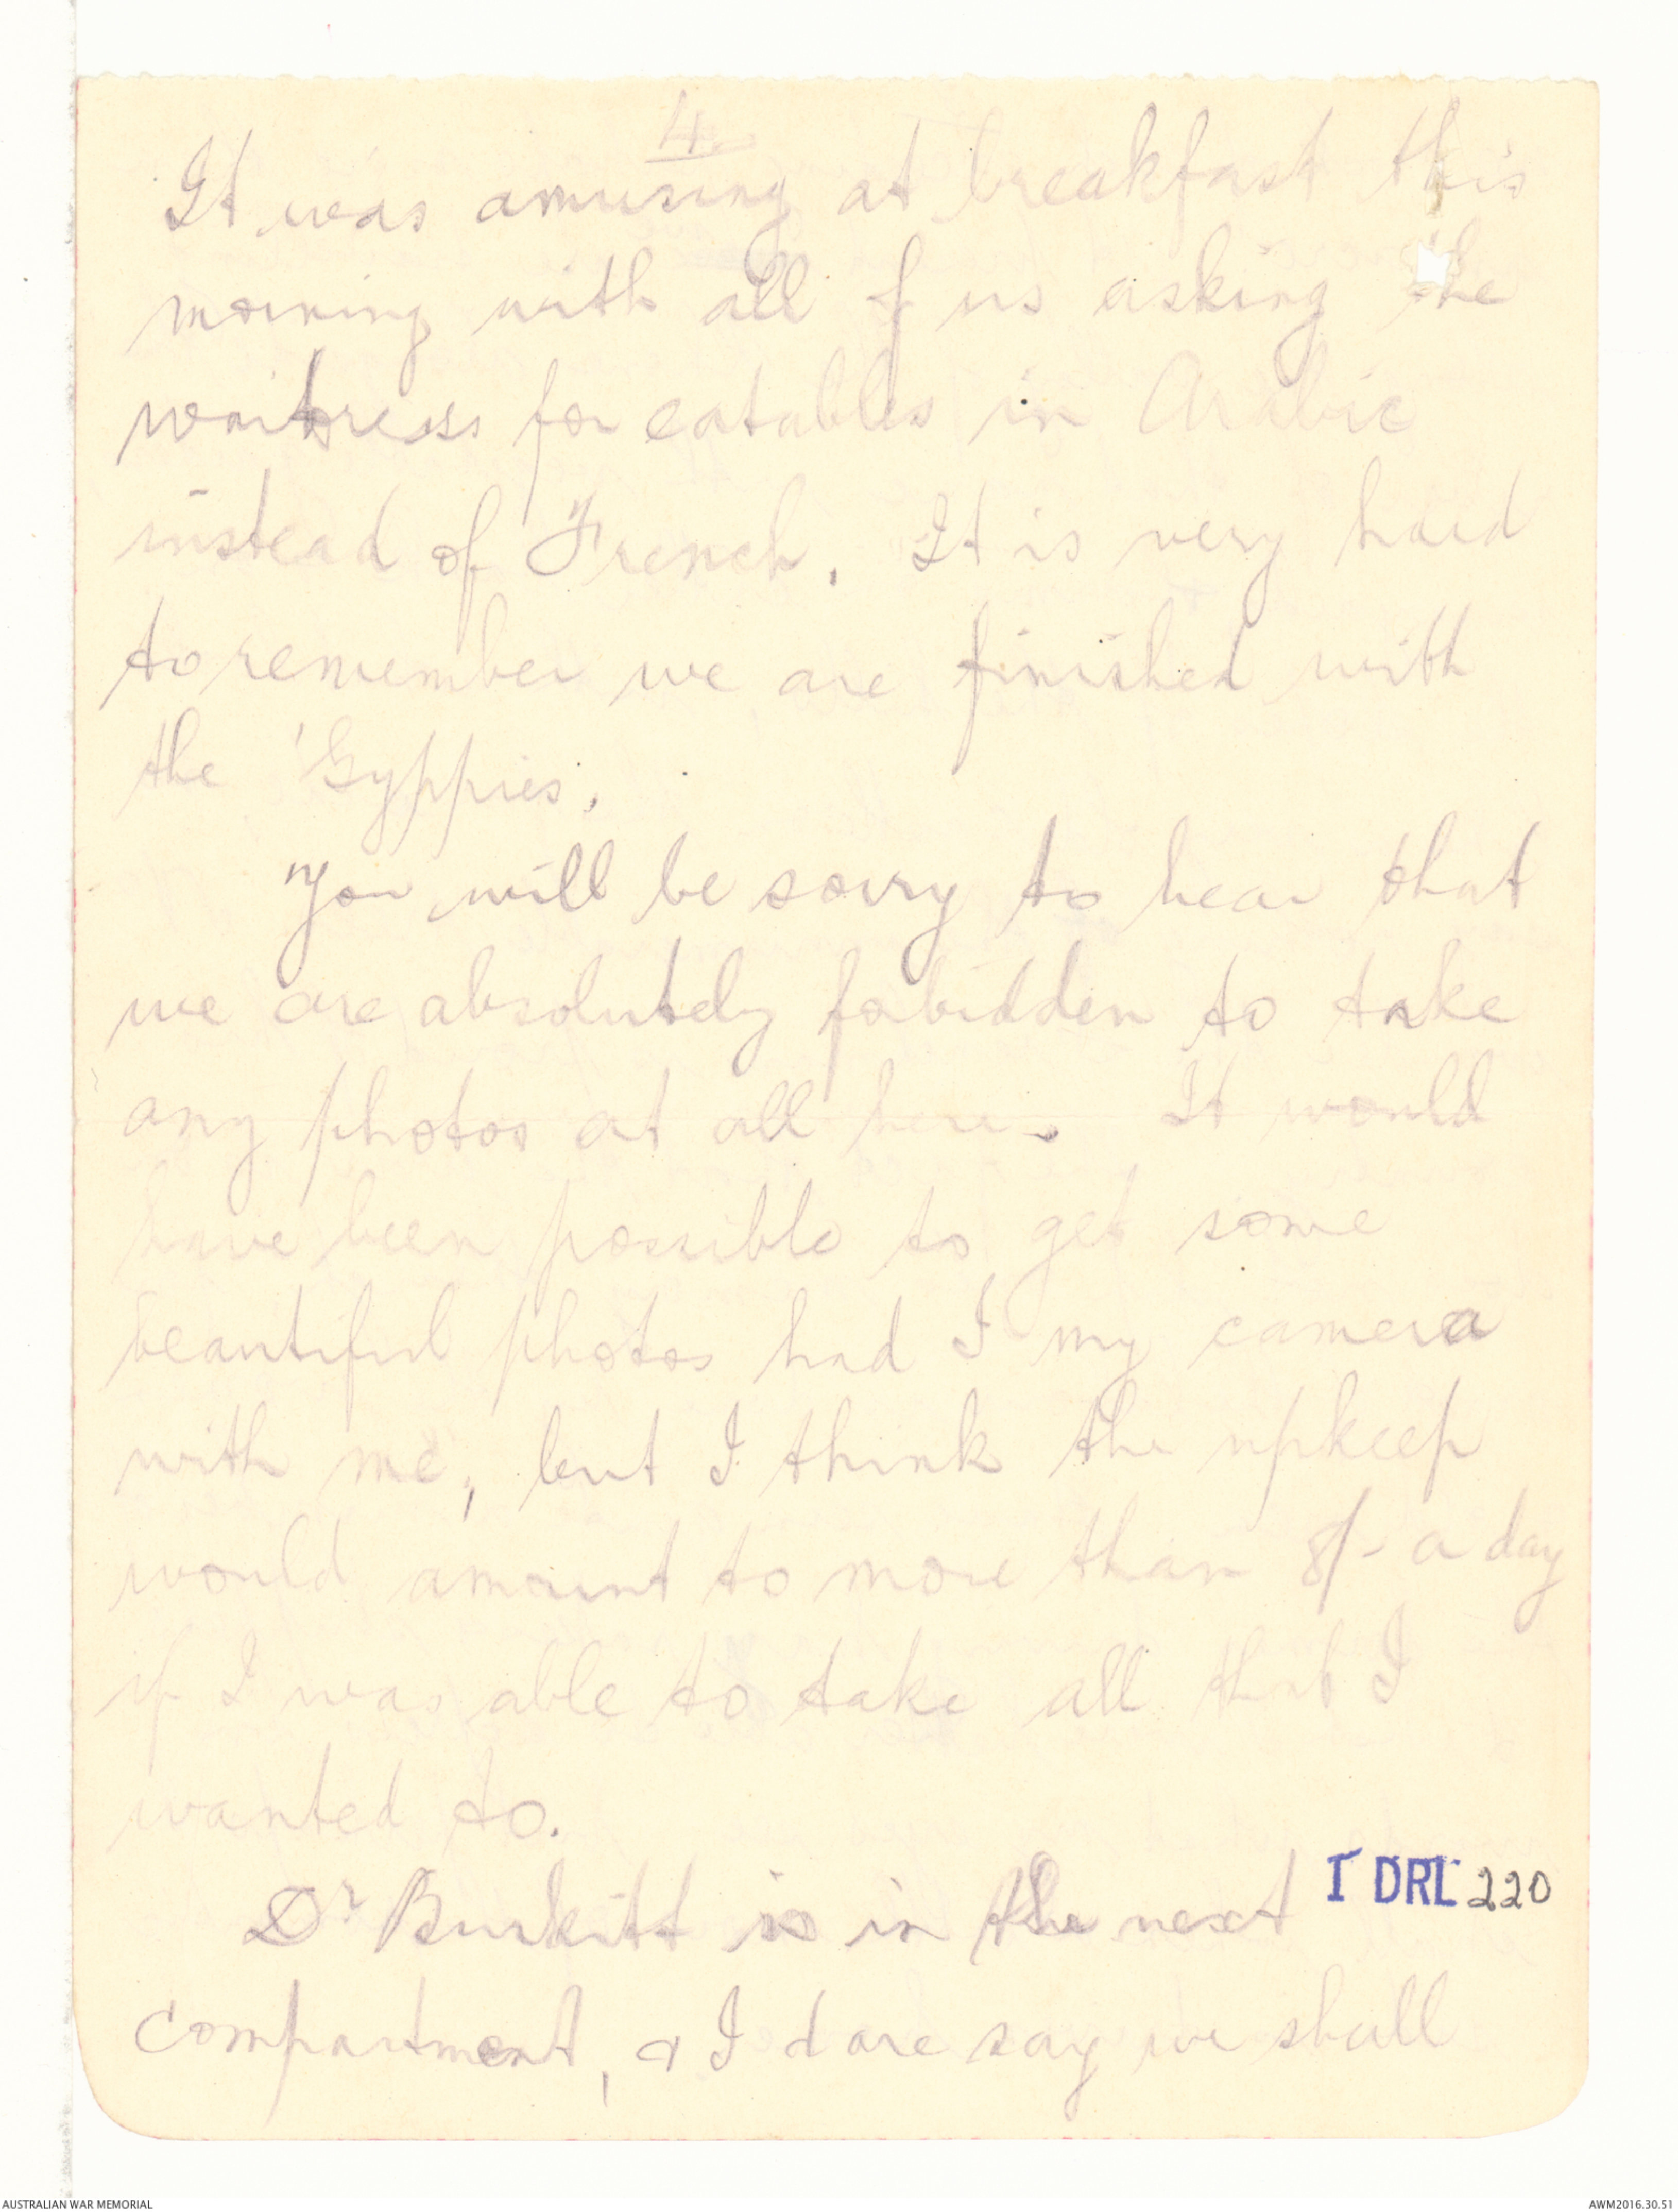 4.
It was amusing at breakfast this
morning with all of us asking the
waitress for eatables in Arabic
instead of French. It is very hard
to remember we are finished with
the 'Gyppies.
You will be sorry to hear that
we are absolutely forbidden to take
any photos at all here. It would
have been possible to get some
beautiful photos had I my camera
with me, but I think the upkeep
would amount to more than 8/- a day
if I was able to take all that I
wanted to.
Dr Burkitt is in the next
1 DRL 220
compartment, & I dare say we shall
AUSTRALIAN WAR MEMORIAL
AWM2016.30.51